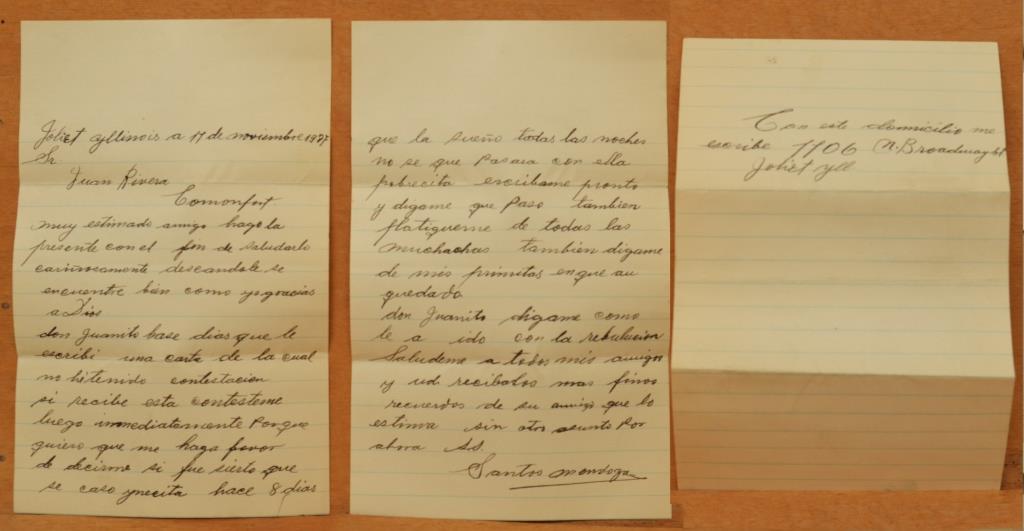 Joliet Yllinois a 17 de noviembre 1927
Sr.
Juan Rivera
Comonfort
muy estimado amigo hago la
presente con el fin de saludarlo
cariñosamente deseandole se
encuentre bien como yo gracias
a Dios
don Juanito hase dias que le
escribi una carta de la cual
no hitenido contestacion
si recibe esta contesteme
luego inmediatamente porque
quiero que me haga favor
de decirme si fue sierto que
se caso ynecita hace 8 dias
que la sueño todas las noches
no se que pasara con ella
pobrecita escribame pronto
y digame que paso tambien
platiqueme de todas las
muchachas tambien digame
de mis primitas en que au
quedado
don Juanito digame como
le a ido con la rebulucion
Saludeme a todos mis amigos
y ud recibalos mas finos
recuerdos de su amigo que lo
estima sin otro asunto por
ahora SS.
Santos Mendoza
Con este domicilio me
escribe 1106 N. Broadway st
Joliet Yll